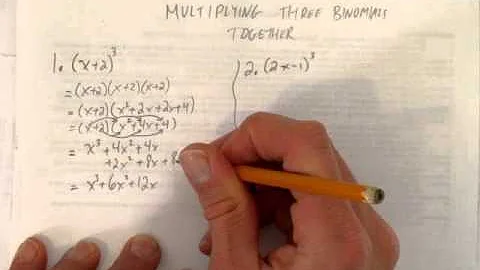 MULTIPLYING THREE BINOMIALS
TOGETHER
1. (x+2)³
= (x+2)(x+2)(x+2)
= (x+2)(x²+2x+2x+4)
= (x+2)(x²+4x+4)
= x³+4x²+4x
+2x²+8x+8
= x³+6x²+12x
2. (2x-1)³